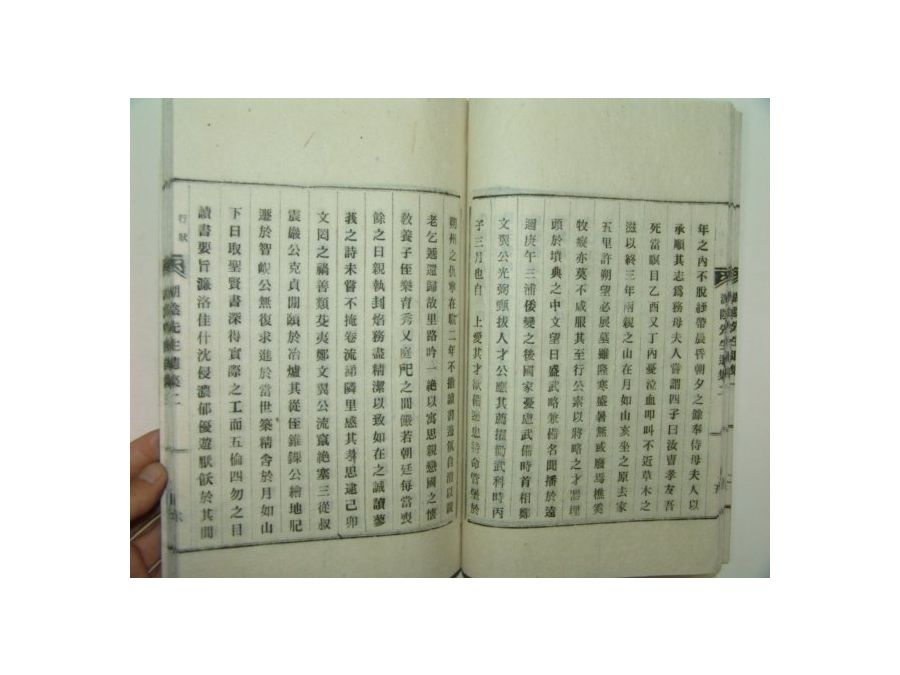 年之內不脫絰帶晨昏朝夕之餘奉侍母夫人以
承順其志爲務母夫人嘗謂四子曰汝曹孝友吾
死當瞑目乙酉又丁內憂泣血叩叫不近草木之
滋以終三年兩親之山在月如山亥坐之原去家
五里許朔望必展墓雖隆寒盛暑無或廢焉樵叟
牧豎亦莫不咸服其至行公素以將略之才習理
頭於墳典之中文望日盛武略兼備名聞播於遠
邇庚午三浦倭變之後國家憂慮武備時首相鄭
文翼公光弼甄拔人才公應其薦擢勸武科時丙
子三月也自 上愛其才欲備 命管堡於
朔州之仇寧在 二年不
老乞遞還歸故里路吟一絶以寓思親戀國之懷
敎養子侄樂育秀又庭 之間嚴若朝廷每當喪
餘之日親執封焰務盡精潔以致如在之誠讀蓼
莪之詩未嘗不掩卷流涕隣里感其孝思逮己卯
文罔之禍善類芟夷鄭文翼公流竄絶塞三從叔
震巖公克貞開頤於冶爐其從侄錐錁公繪地肥
遯於智 公無復求進於當世築精舍於月如山
下日取聖賢書深得實際之工而五倫四勿之目
讀書要旨濂洛佳什沈侵濃郁優遊厭飫於其間
行狀
先生遺集 二